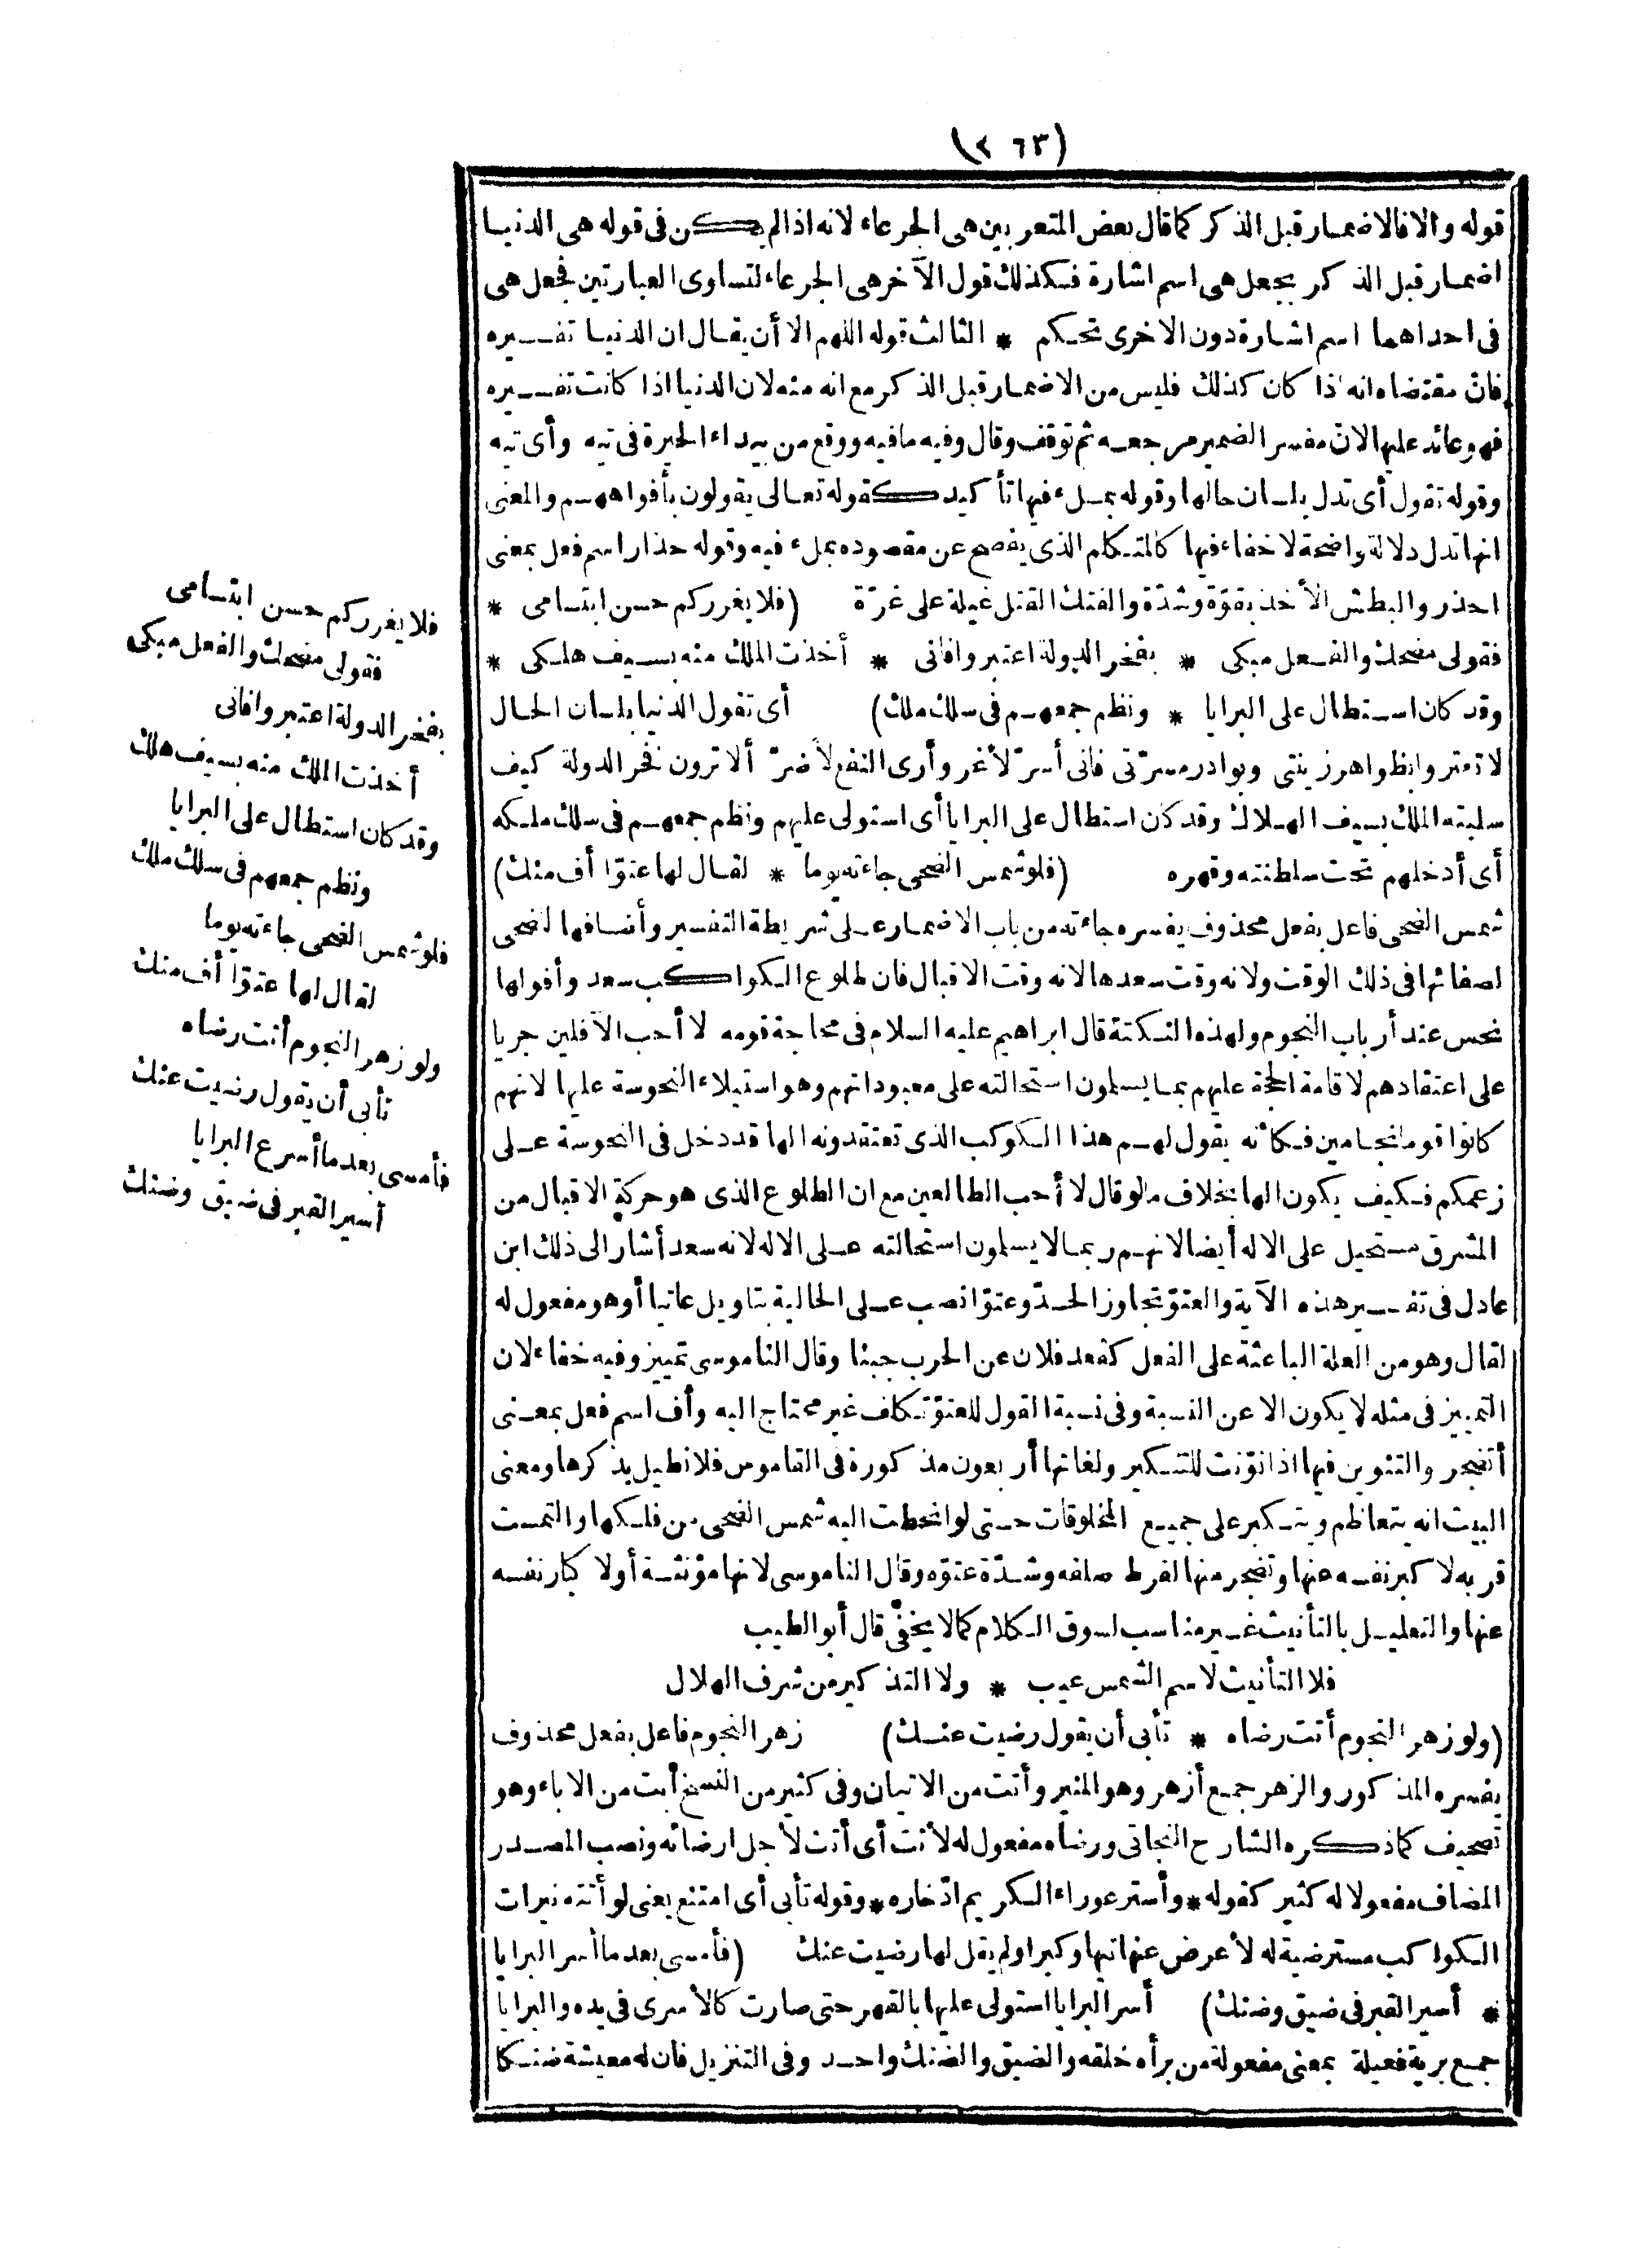 (٢٦٣)
قوله والا فالاضمار قبل الذكر كما قال بعض المتعربين هى الجرعاء لانه اذا لم يكن فى قوله هى الدنيا
اضمار قبل الذكر بجعل هى اسم اشارة فكذلك قول الآخر هى الجرعاء لتساوى العبارتين فجعل هى
فى احداهما اسم اشارة دون الاخرى تحكم * الثالث قوله اللهم الا أن يقال ان الدنيا تفسيره
فان مقتضاه انه اذا كان كذلك فليس من الاضمار قبل الذكر مع انه منه لان الدنيا اذا كانت تفسيره
فهو عائد عليها لان مفسر الضمير مرجعه ثم توقف وقال وفيه ما فيه ووقع من بيداء الحيرة فى تيه وأى تيه
وقوله تقول أى تدل بلسان حالها وقوله بملء فيها تأكيد كقوله تعالى يقولون بأفواههم والمعنى
انها تدل دلالة واضحة لا خفاء فيها كالمتكلم الذى يفصح عن مقصوده بملء فيه وقوله حذار اسم فعل بمعنى
احذر والبطش الأخذ بقوّة وشدّة والفتك القتل غيلة على غرّة (فلا يغرركم حسن ابتسامى *
فقولى مضحك والفعل مبكى * بفخر الدولة اعتبروا فانى * أخذت الملك منه بسيف هلكى *
وقد كان استطال على البرايا * ونظم جمعهم فى سلك ملك) أى تقول الدنيا بلسان الحال
لا تغتروا بظواهر زينتى وبوادر مسرّتى فانى أسرّ لأغر وأرى النفع لأضرّ ألا ترون فخر الدولة كيف
سلبته الملك بسيف الهلاك وقد كان استطال على البرايا أى استولى عليهم ونظم جمعهم فى سلك ملكه
أى أدخلهم تحت سلطنته وقهره (فلو شمس الضحى جاءته يوما * لقال لها عتوّا أف منك)
شمس الضحى فاعل بفعل محذوف يفسره جاءته من باب الاضمار على شريطة التفسير وأضافها لضحى
لصفائها فى ذلك الوقت ولانه وقت سعدها لانه وقت الاقبال فان طلوع الكواكب سعد وأفولها
نحس عند أرباب النجوم ولهذه النكتة قال ابراهيم عليه السلام فى محاجة قومه لا أحب الآفلين جريا
على اعتقادهم لاقامة الحجة عليهم بما يسلمون استحالته على معبوداتهم وهو استيلاء النحوسة عليها لانهم
كانوا قوما نجامين فكأنه يقول لهم هذا الكوكب الذى تعتقدونه الها قد دخل فى النحوسة على
زعمكم فكيف يكون الها بخلاف ما لو قال لا أحب الطالعين مع ان الطلوع الذى هو حركة الاقبال من
المشرق مستحيل على الاله أيضا لانهم ربما لا يسلمون استحالته على الاله لانه سعد أشار الى ذلك ابن
عادل فى تفسير هذه الآية والعتوّ تجاوز الحدّ وعتوّا نصب على الحالية بتاويل عاتيا أو هو مفعول له
لقال وهو من العلة الباعثة على الفعل كقعد فلان عن الحرب جبنا وقال الناموسى تمييز وفيه خفاء لان
التمييز فى مثله لا يكون الا عن النسبة وفى نسبة القول للعتوّ تكلف غير محتاج اليه وأف اسم فعل بمعنى
أتضجر والتنوين فيها اذا نوّنت للتنكير ولغاتها أربعون مذكورة فى القاموس فلا نطيل بذكرها ومعنى
البيت انه يتعاظم ويتكبر على جميع المخلوقات حتى لو انحطت اليه شمس الضحى من فلكها والتمست
قربه لا كبر نفسه عنها وتضجر منها لفرط صلفه وشدّة عتوّه وقال الناموسى لانها مؤنثة أو لا كبار نفسه
عنها والتعليل بالتأنيث غير مناسب لسوق الكلام كما لا يخفى قال أبو الطيب
فلا التأنيث لاسم الشمس عيب * ولا التذكير من شرف الهلال
(ولو زهر النجوم أتت رضاه * تأبى أن يقول رضيت عنك) زهر النجوم فاعل بفعل محذوف
يفسره المذكور والزهر جمع أزهر وهو المنير وأتت من الاتيان وفى كثير من النسخ أبت من الاباء وهو
تصحيف كما ذكره الشارح النجاتى ورضاه مفعول له لأتت أى أتت لأجل ارضائه ونصب المصدر
المضاف مفعولا له كثير كقوله * وأستر عوراء الكريم ادّخاره * وقوله تأبى أى امتنع يعنى لو أتته نيرات
الكواكب مسترضية له لأعرض عنها تيها وكبرا ولم يقل لها رضيت عنك (فأمسى بعد ما أسر البرايا
* أسير القبر فى ضيق وضنك) أسر البرايا استولى عليها بالقهر حتى صارت كالأسرى فى يده والبرايا
جمع برية فعيلة بمعنى مفعولة من برأه خلقه والضيق والضنك واحد وفى التنزيل فان له معيشة ضنكا
فلا يغرركم حسن ابتسامى
فقولى مضحك والفعل مبكى
بفخر الدولة اعتبروا فانى
أخذت الملك منه بسيف هلك
وقد كان استطال على البرايا
ونظم جمعهم فى سلك ملك
فلو شمس الضحى جاءته يوما
لقال لها عتوّا أف منك
ولو زهر النجوم أتت رضاه
تأبى أن يقول رضيت عنك
فأمسى بعد ما أسرع البرايا
أسير القبر فى ضيق وضنك